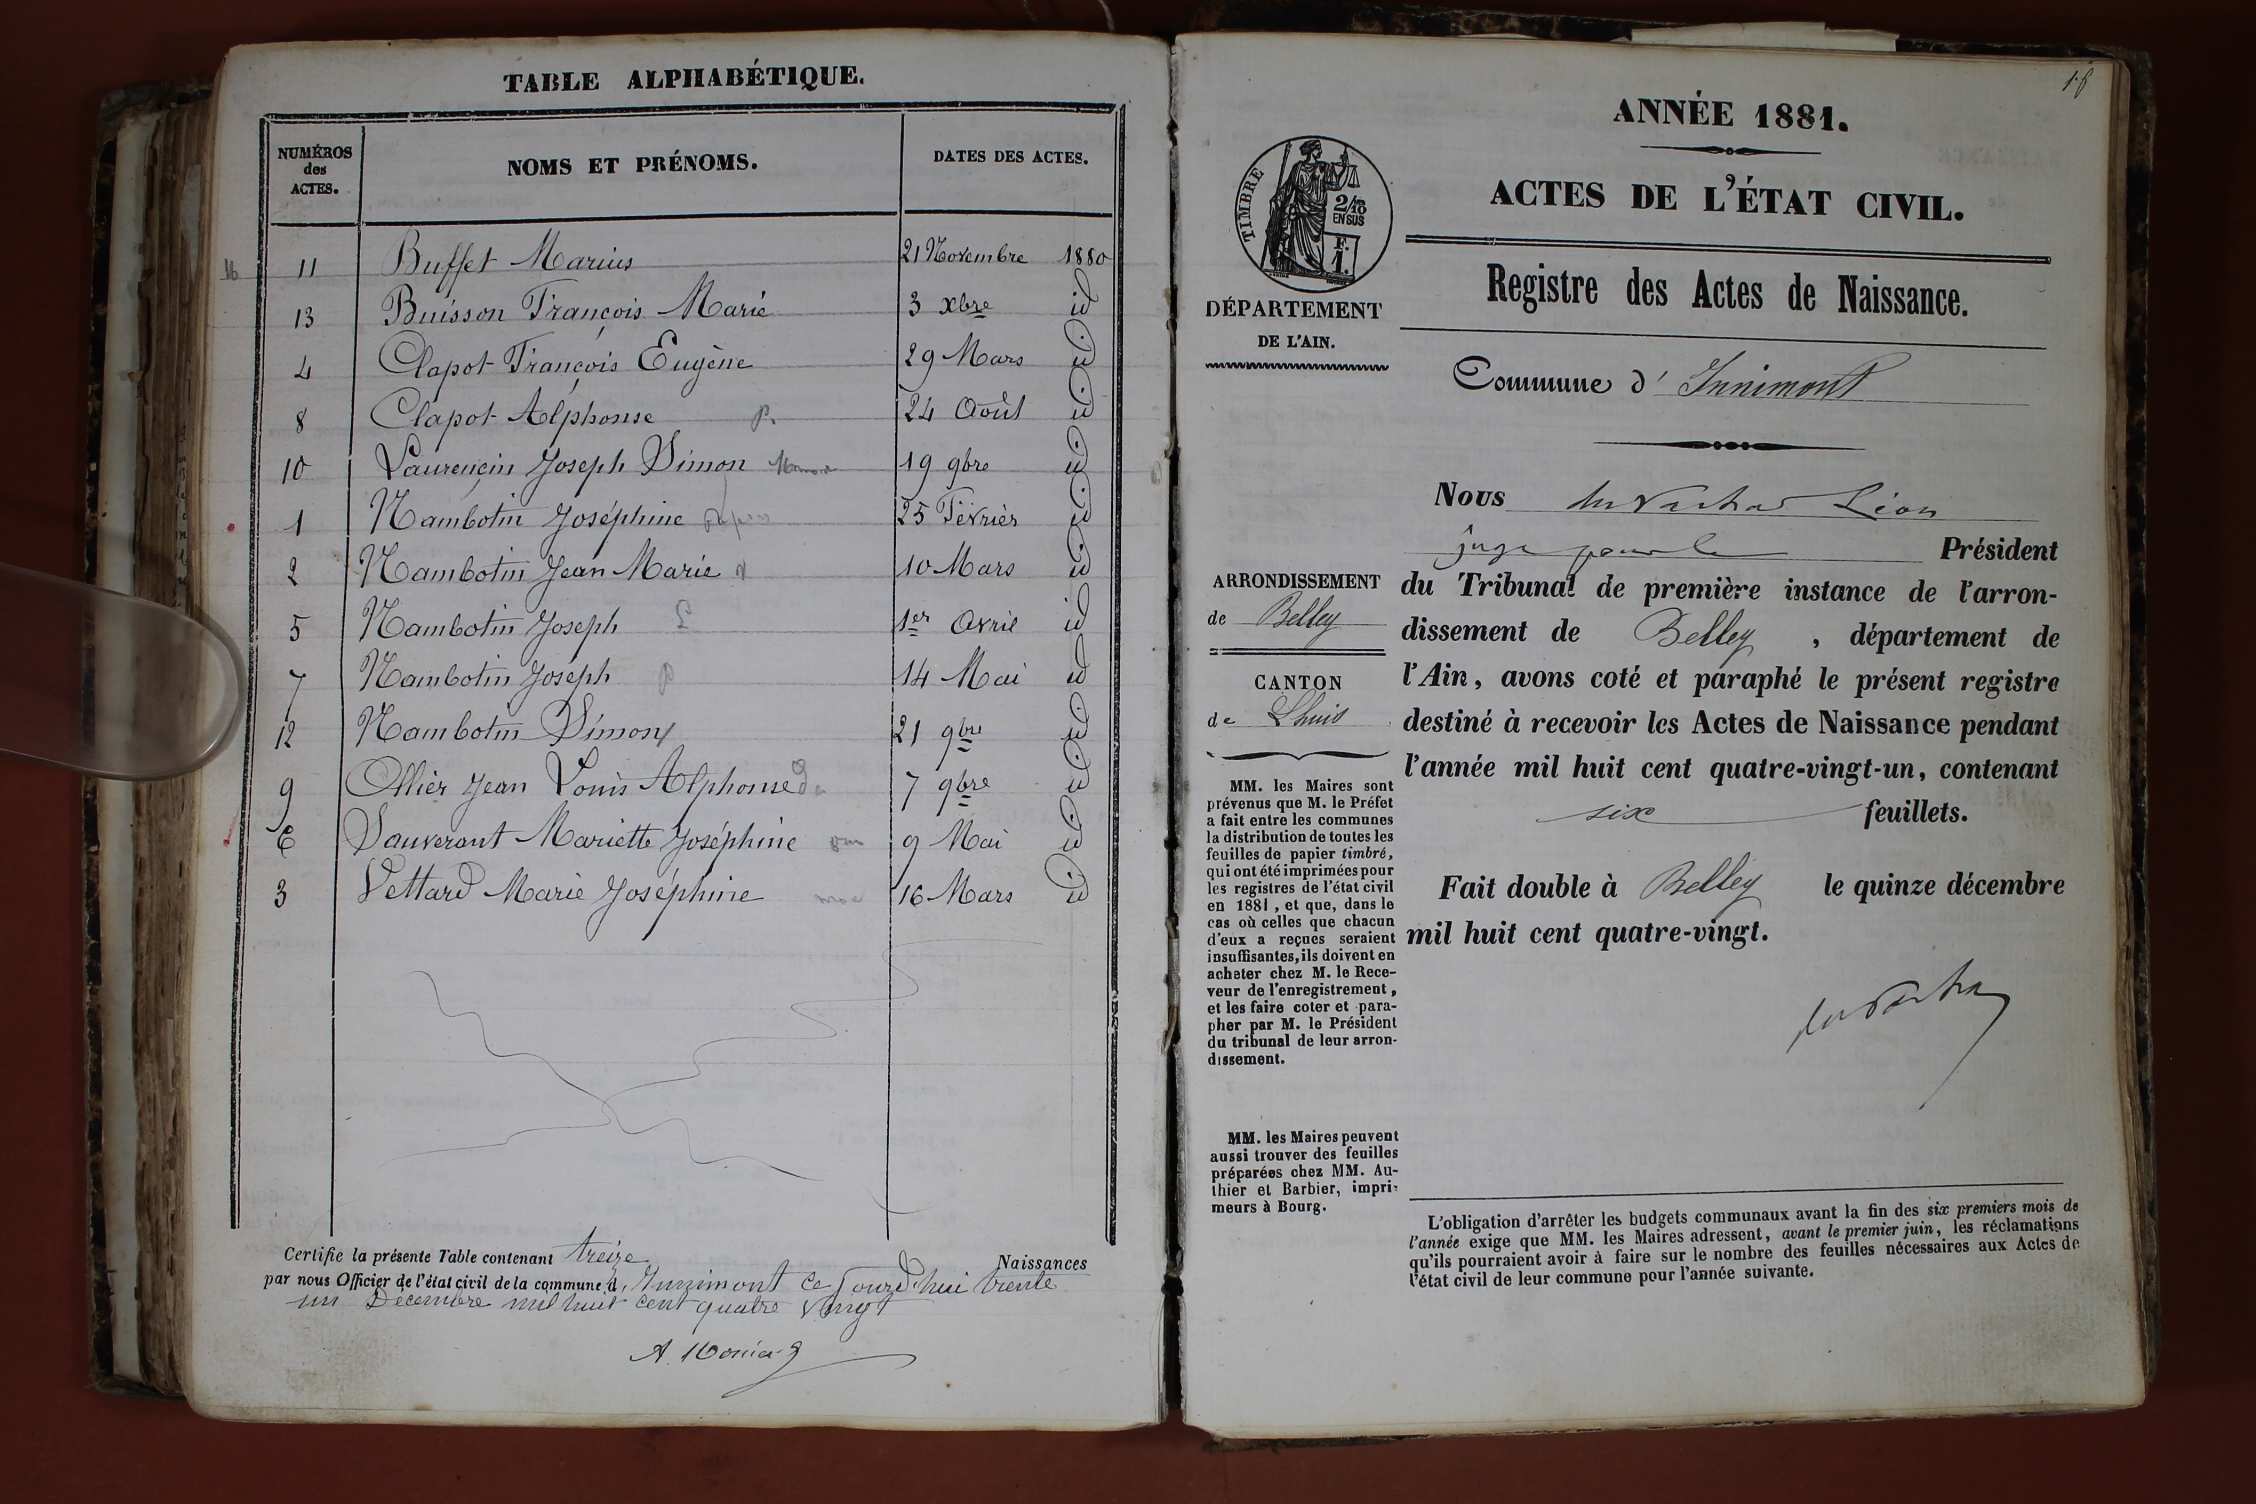 TABLE ALPHABÉTIQUE.
NUMÉROS des ACTES. NOMS ET PRÉNOMS. DATES DES ACTES.
11 Buffet Marius 21 Novembre 1880
13 Buisson François Marie 3 xbre id
4 Clapot François Eugène 29 Mars id
8 Clapot Alphonse 24 Août id
10 Laurencin Joseph Simon 19 9bre id
1 Nambotin Joséphine 25 Février id
2 Nambotin Jean Marie 10 Mars id
5 Nambotin Joseph 1er Avril id
7 Nambotin Joseph 14 Mai id
12 Nambotin Simon 21 9bre id
9 Ollier Jean Louis Alphonse 7 9bre id
6 Sauverant Mariette Joséphine 9 Mai id
3 Vettard Marie Joséphine 16 Mars id
Certifie la présente Table contenant treize Naissances
par nous Officier de l'état civil de la commune d' Innimont ce Jourd'hui trente
un Décembre mil huit cent quatre vingt
ANNÉE 1881.
ACTES DE L'ÉTAT CIVIL.
Registre des Actes de Naissance.
Commune d' Innimont
TIMBRE
2/10
EN SUS
F.
1.
DÉPARTEMENT
DE L'AIN.
ARRONDISSEMENT
de Belley
CANTON
de Lhuis
MM. les Maires sont
prévenus que M. le Préfet
a fait entre les communes
la distribution de toutes les
feuilles de papier timbré,
qui ont été imprimées pour
les registres de l'état civil
en 1881, et que, dans le
cas où celles que chacun
d'eux a reçues seraient
insuffisantes, ils doivent en
acheter chez M. le Rece-
veur de l'enregistrement,
et les faire coter et para-
pher par M. le Président
du tribunal de leur arron-
dissement.
MM. les Maires peuvent
aussi trouver des feuilles
préparées chez MM. Au-
thier et Barbier, impri-
meurs à Bourg.
Nous Léon
juge pour le Président
du Tribunal de première instance de l'arron-
dissement de Belley, département de
l'Ain, avons coté et paraphé le présent registre
destiné à recevoir les Actes de Naissance pendant
l'année mil huit cent quatre-vingt-un, contenant
six feuillets.
Fait double à Belley le quinze décembre
mil huit cent quatre-vingt.
L'obligation d'arrêter les budgets communaux avant la fin des six premiers mois de
l'année exige que MM. les Maires adressent, avant le premier juin, les réclamations
qu'ils pourraient avoir à faire sur le nombre des feuilles nécessaires aux Actes de
l'état civil de leur commune pour l'année suivante.